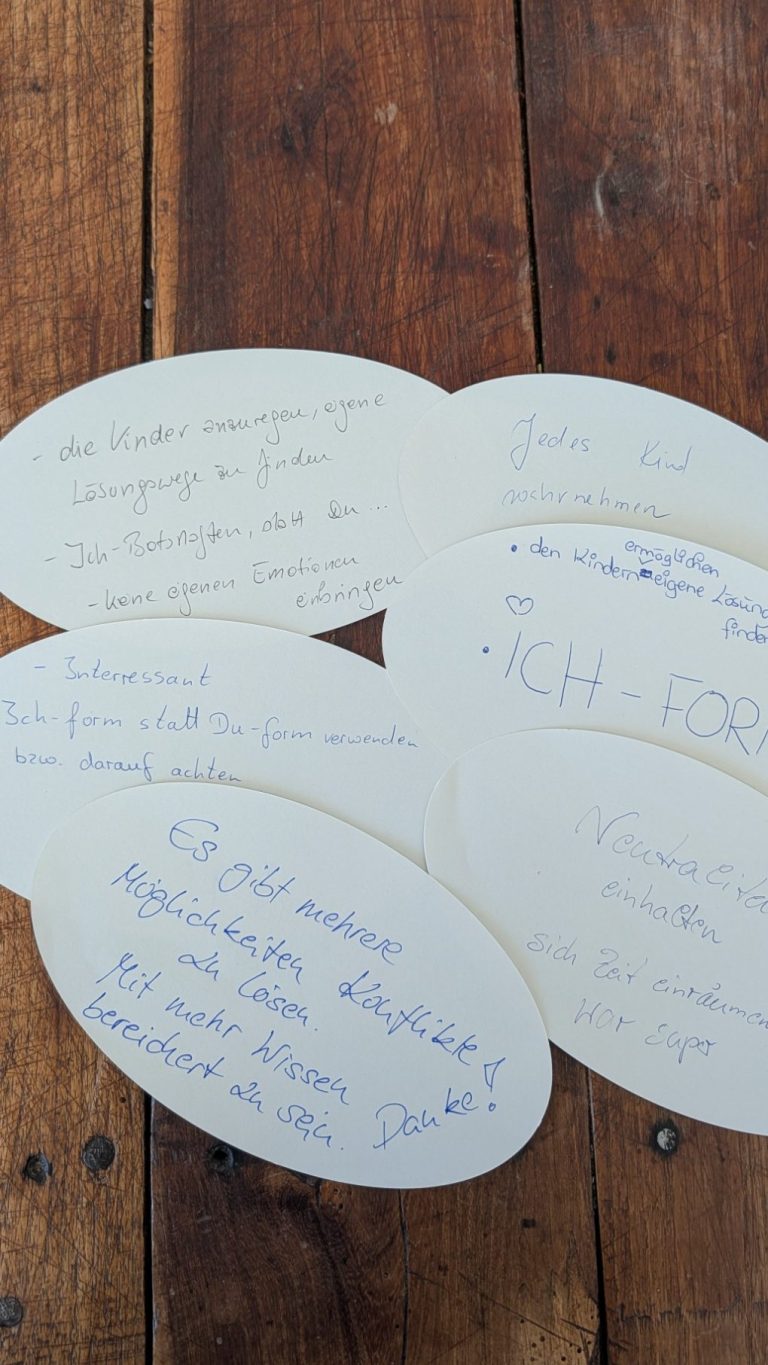 - die Kinder anzuregen, eigene
Lösungswege zu finden
- Ich-Botschaften, statt Du ...
- keine eigenen Emotionen
einbringen
Jedes Kind
wahrnehmen
ermöglichen
• den Kindern eigene Lösung
finden
♡
• ICH - FORM
- Interressant
Ich-form statt Du-form verwenden
bzw. darauf achten
Neutralität
einhalten
sich Zeit einräumen
War super
Es gibt mehrere
Möglichkeiten Konflikte
zu lösen.
Mit mehr Wissen
bereichert zu sein. Danke!